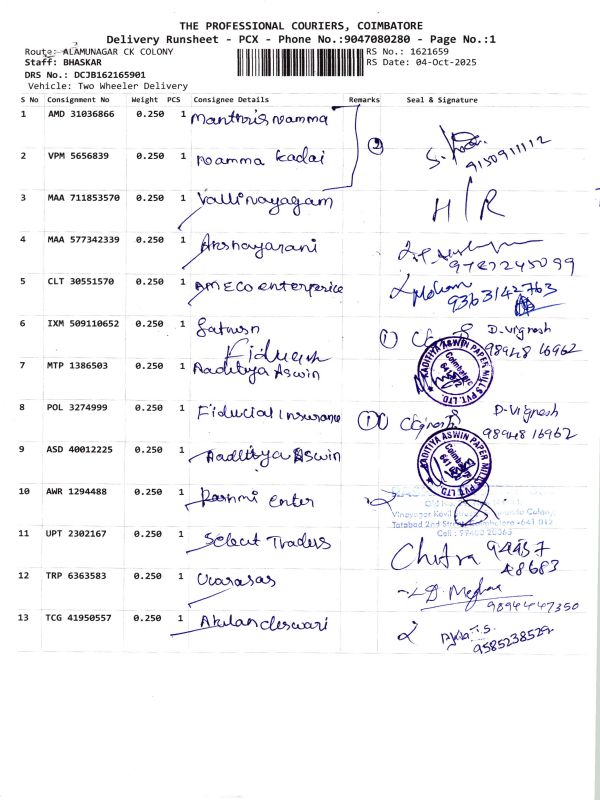 THE PROFESSIONAL COURIERS, COIMBATORE
Delivery Runsheet - PCX - Phone No.:9047080280 - Page No.:1
Route: ALAMUNAGAR CK COLONY
RS No.: 1621659
Staff: BHASKAR
RS Date: 04-Oct-2025
DRS No.: DCJB162165901
Vehicle: Two Wheeler Delivery
S No Consignment No Weight PCS Consignee Details Remarks Seal & Signature
1 AMD 31036866 0.250 1 Manthris namma
2 VPM 5656839 0.250 1 namma Kadai 9150911112
3 MAA 711853570 0.250 1 Vallinayagam H/R
4 MAA 577342339 0.250 1 Akshayarani
5 CLT 30551570 0.250 1 AMECO enterprice Mohan 9363142763
6 IXM 509110652 0.250 1 D. Vignesh
Fiducial 98948 16962
7 MTP 1386503 0.250 1 Aaditya Aswin KADITIYA ASWIN PAPER MILLS PVT. LTD. Coimbatore
8 POL 3274999 0.250 1 Fiducial Insurance D. Vignesh 98948 16962
9 ASD 40012225 0.250 1 Aaditya Aswin KADITIYA ASWIN PAPER MILLS PVT. LTD. Coimbatore
10 AWR 1294488 0.250 1 Rashmi enter
Tatabad 2nd Street, Coimbatore -641 012
11 UPT 2302167 0.250 1 Select Traders Chitra 94457 48683
12 TRP 6363583 0.250 1 D. Megha 9894447350
13 TCG 41950557 0.250 1 Akilandeswari 9585238529